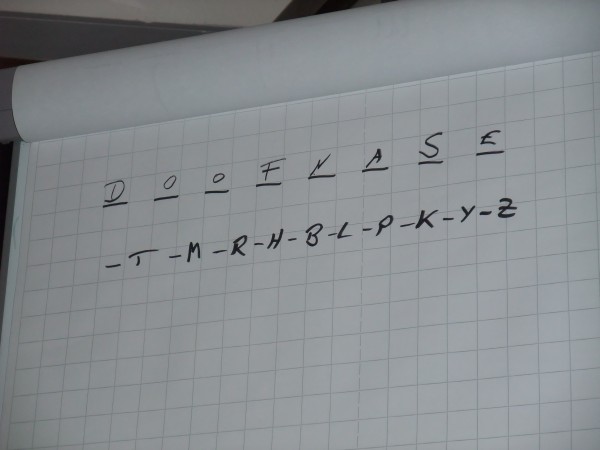 D O O F N A S E
- T - M - R - H - B - L - P - K - Y - Z